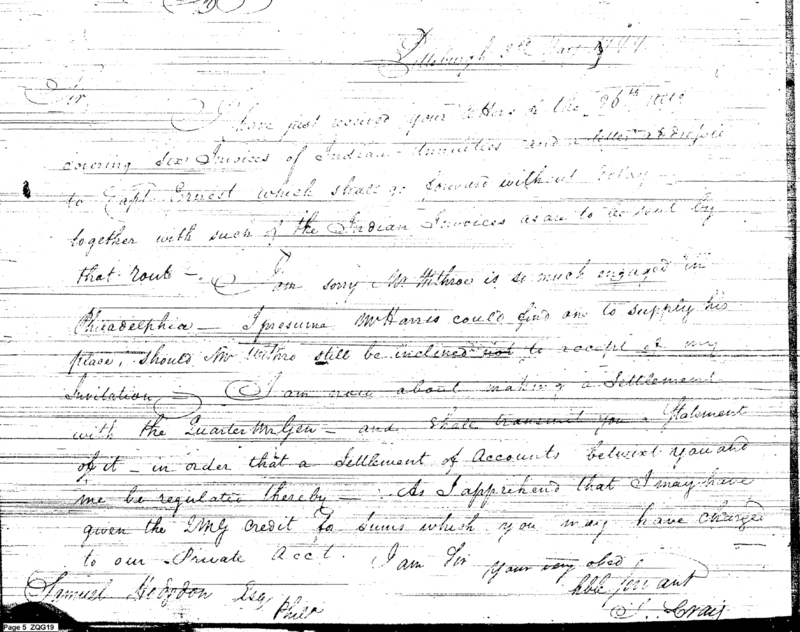 Pittsburgh
Sir,
I have just received your letters of the 26th
covering six Invoices of Indian Annuities and a letter addressed
to Capt. Ernest which shall go forward without delay
together with such of the Indian Invoices as are to be sent by
that rout — I am sorry Mr Withroe is so much engaged in
Philadelphia — I presume Mr Harris could find one to supply his
place, should Mr Withro still be inclined not to accept of my
Invitation — I am now about making a Settlement
with the Quarter Mr Gen — and shall transmit you a Statement
of it — in order that a Settlement of Accounts betwixt you and
me be regulated thereby — As I apprehend that I may have
given the QMG credit for sums which you may have charged
to our Private Acct. I am Sir your very obed
hble Servant
Samuel Hodgdon Esq
Phila
J. Craig
Page 5 ZQG19